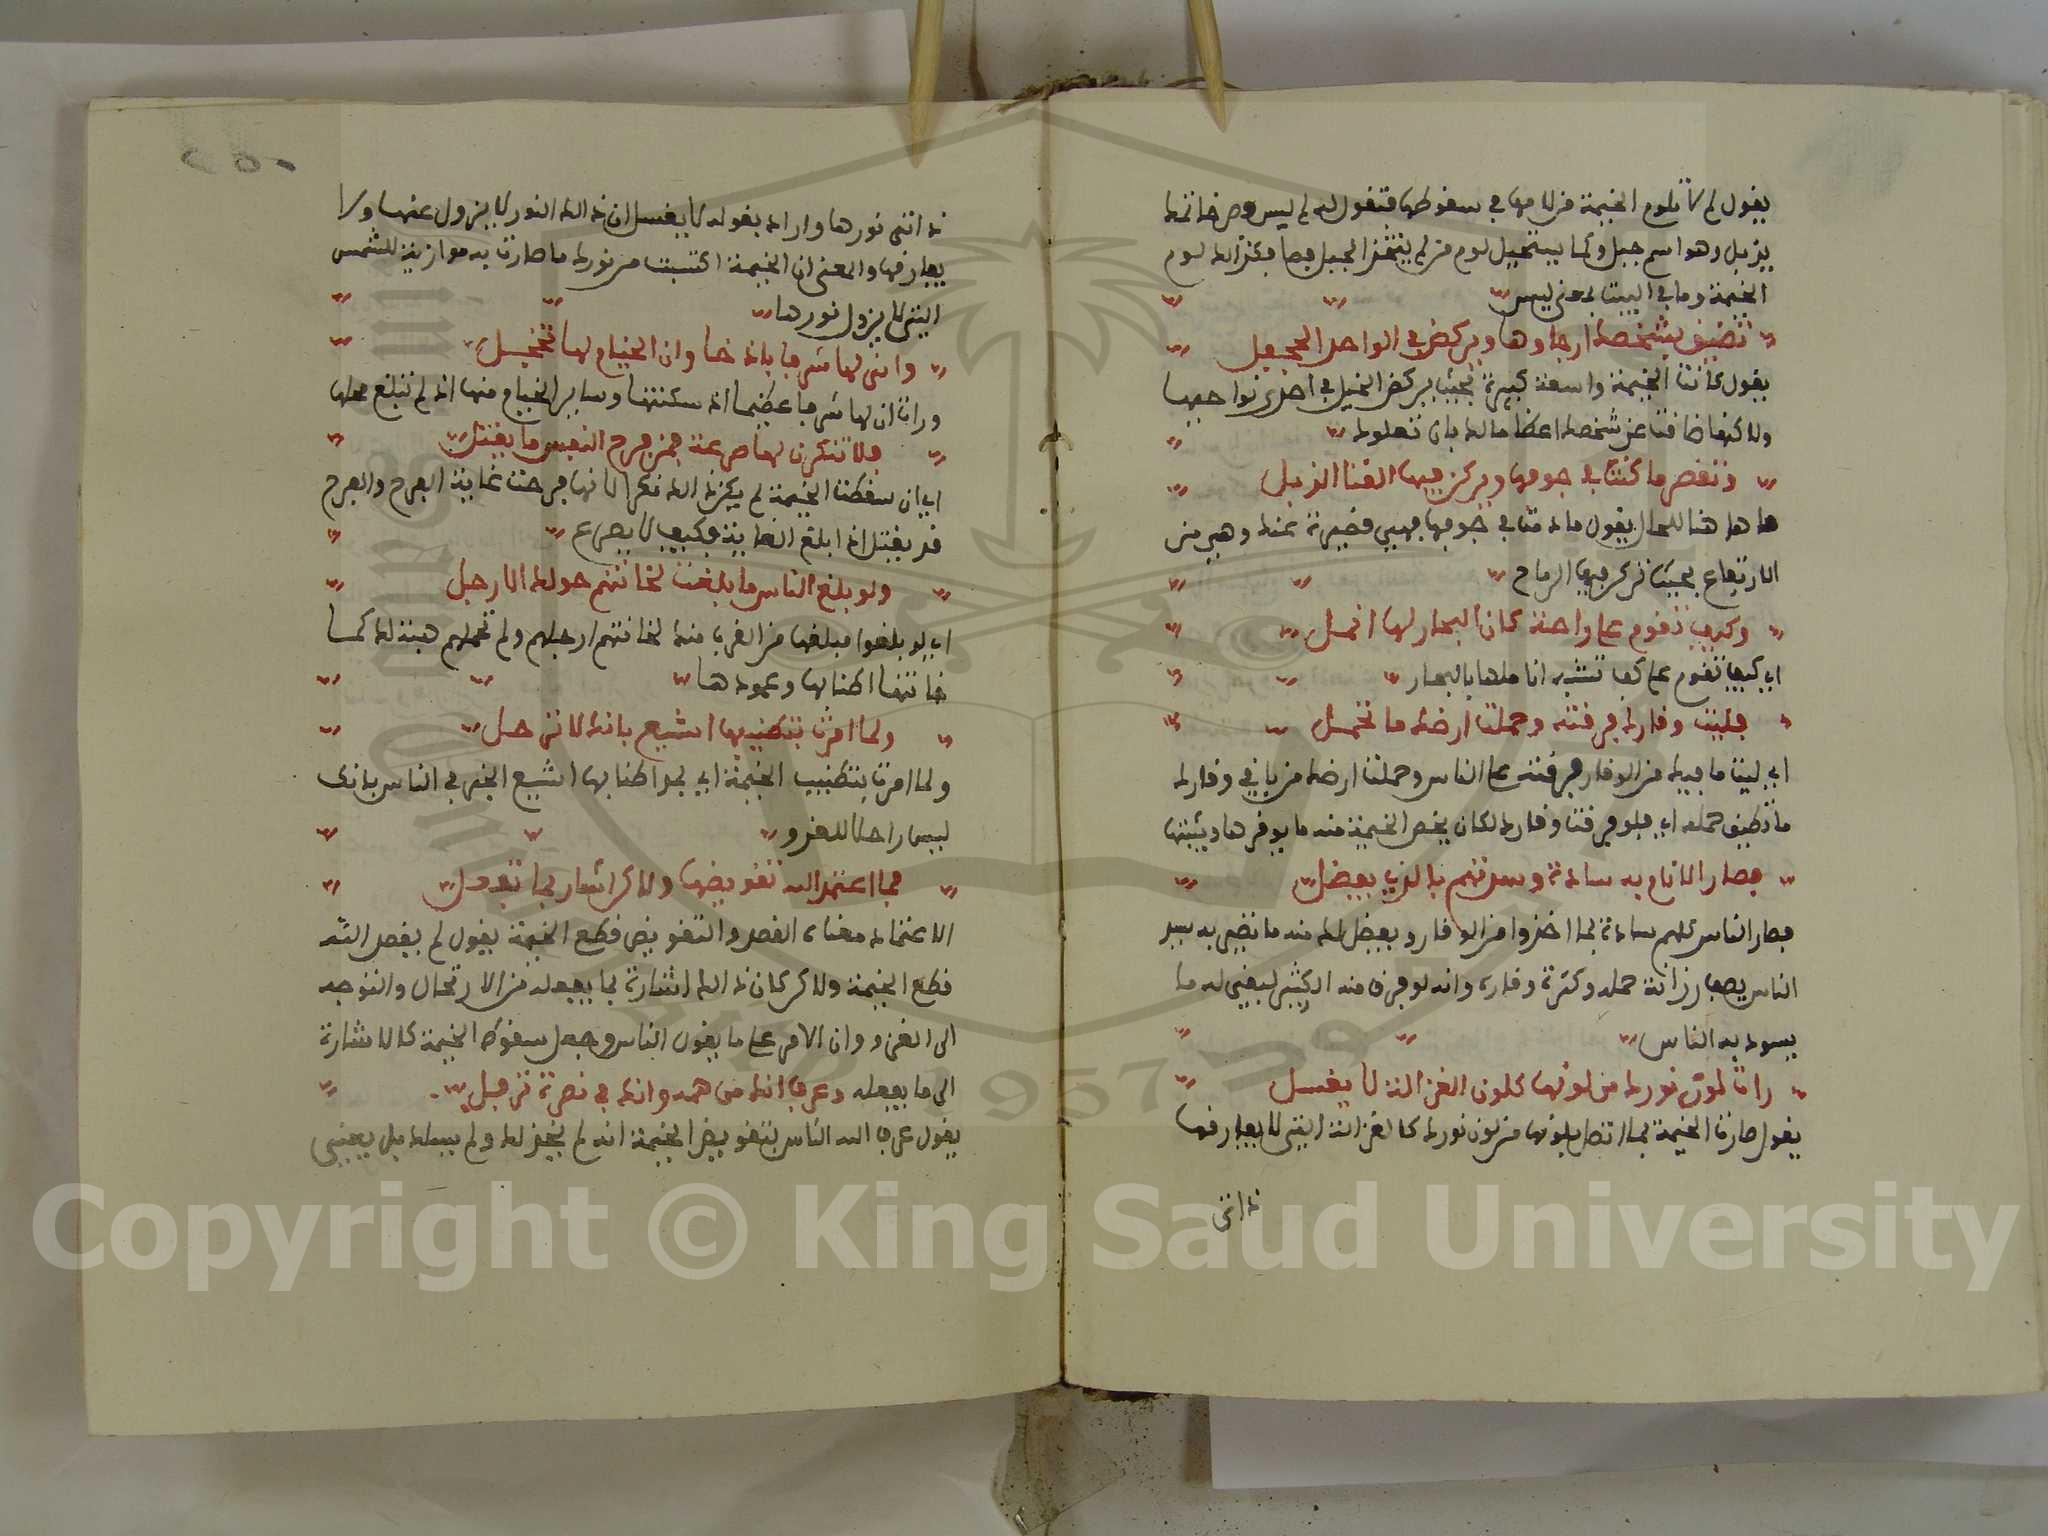 يقول لم لا تلوم الخيمة من لامها في سقوطها فتقول له لم ليس فص خاتمك
يذبل وهو اسم جبل وكما يستحيل لوم من لم يتختم الجبل فصا فكذلك لوم
الخيمة وما في البيت بمعنى ليس
تضيق بشخصك ارجاوها ويركض في الواحد الجحفل
يقول كانت الخيمة واسعة كبيرة بحيث يركض الخيل في احدى نواحيها
ولاكنها ضاقت عن شخصك اعظاما لك بان تعلوك
وتقصر ما كنت في جوفها ويركز فيها القنا الذبل
ما هاهنا للحال يقول ما دمت في جوفها فهي قصيرة عنك وهي من
الارتفاع بحيث تركز فيها الرماح
وكيف تقوم على راحة كان البحار لها انمل
اي كيف تقوم على كف تشبه اناملها بالبحار
فليت وقارك فرقته وحملت ارضك ما تحمل
اي ليت ما فيك من الوقار فرقته على الناس وحملت ارضك من باقي وقارك
ما تطيق حمله اي فلو فرقت وقارك لكان يخص الخيمة منه ما يوقرها ويثبتها
فصار الانام به سادة وسدتهم بالذي يفضل
فصار الناس كلهم سادة بما اخذوا من الوقار ويفضل لك منه ما تضى به سيد
الناس يصف رزانة حمله وكثرة وقاره وانه لو فرق منه الكثير لبقي له ما
يسود به الناس
رات لون نورك من لونها كلون الغزالة لا يغسل
يقول صارت الخيمة بما اتصل بلونها من لون نورك كالغزالة التي لا يفارقها
ذاتي
ذاتي نورها واراد بقوله لا يغسل ان ذلك النور لا يزول عنها ولا
يفارقها والمعنى ان الخيمة اكتسبت من نورك ما صارت به موازية للشمس
التي لا يزول نورها
وانى لها شرفا باذخا وان الخيام لها تخجل
ورات ان لها شرفا عظيما اذ سكنتها وساير الخيام منها اذ لم تبلغ محلها
فلا تنكرن لها صرعة فمن فرح النفس ما يقتل
اي ان سقطت الخيمة لم يكن ذلك نكرا لانها فرحت غاية الفرح والفرح
قد يقتل اذا بلغ الغاية فكيف لا يصرع
ولو بلغ الناس ما بلغت لخانتهم حولك الارجل
اي لو بلغوا مبلغها من القرب منك لخانتهم ارجلهم ولم تحملهم هيبة لك كما
خانتها اطنابها وعمودها
ولما امرت بتطنيبها اشيع بانك لا ترحل
ولما امرت بتطنيب الخيمة اي بمد اطنابها اشيع الخبر في الناس بانك
ليس راحلا للغزو
فما اعتمد الله تقويضها ولاكن اشار بما تفعل
الاعتماد معناه القصد والتقويض قطع الخيمة يقول لم يقصد الله
قطع الخيمة ولاكن كان ذلك اشارة بما يفعله من الارتحال والتوجه
الى الغزو وان الامر على ما يقول الناس وجعل سقوط الخيمة كالاشارة
الى ما يفعله وعرف انك من همه وانك في نصرة ترفل
يقول عرف الله الناس بتقويض الخيمة انه لم يخذلك ولم يسلمك بل يعتني
Copyright © King Saud University
1957